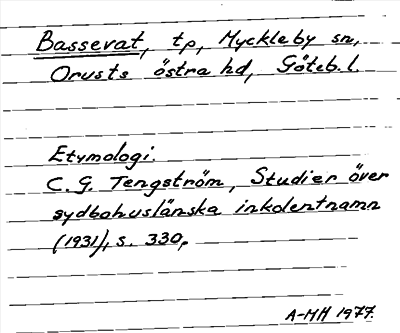 Bassevat, tp, Myckleby sn,
Orusts östra hd, Göteb. l.
Etymologi.
C. G. Tengström, Studier över
sydbohuslänska inkolentnamn
(1931), s. 330,
A-MH 1977.